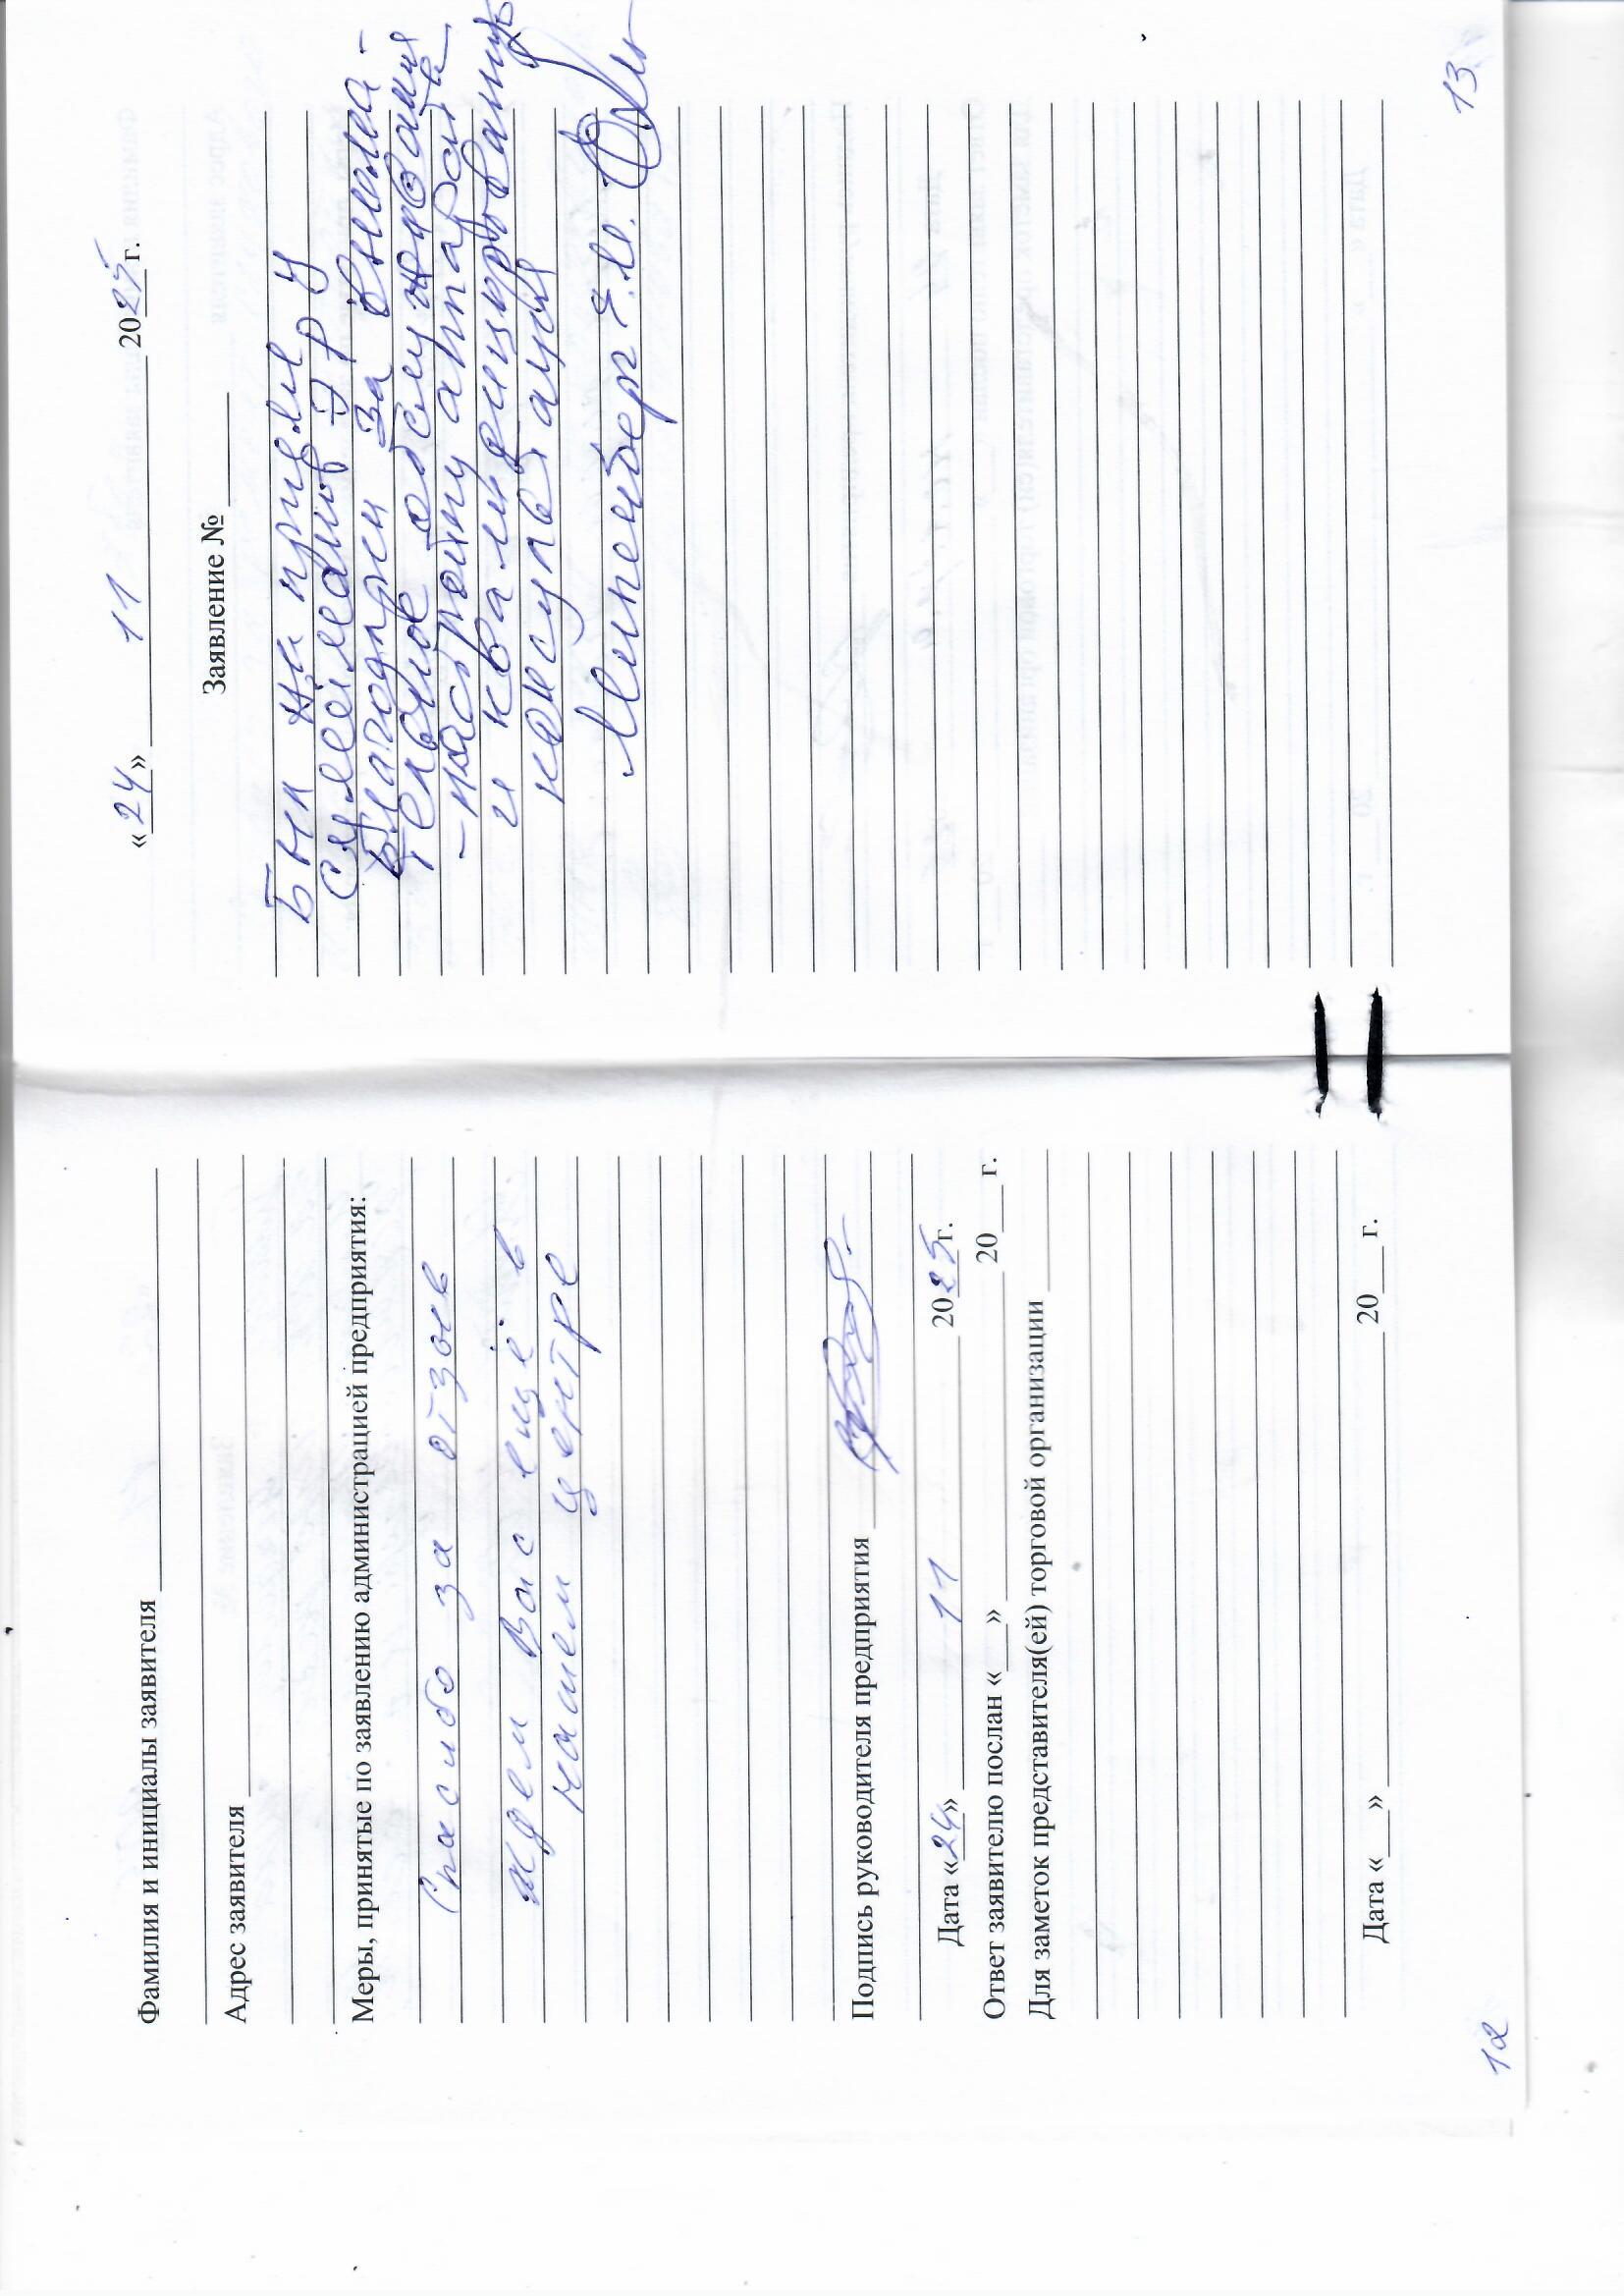 Фамилия и инициалы заявителя
Адрес заявителя
Меры, принятые по заявлению администрацией предприятия:
Спасибо за отзыв
ждем Вас ещё в
нашем центре
Подпись руководителя предприятия
Дата «24» 11 2025г.
Ответ заявителю послан «___» 20___г.
Для заметок представителя(ей) торговой организации
Дата «___» 20___г.
12
«24» 11 2025г.
Заявление № ______
Был на приеме у
Сулейманов Э Р
Благодарен за внима-
тельное обслуживание
– настройку аппарата
и квалифицированную
консультация
Липенберг Я.М.
13